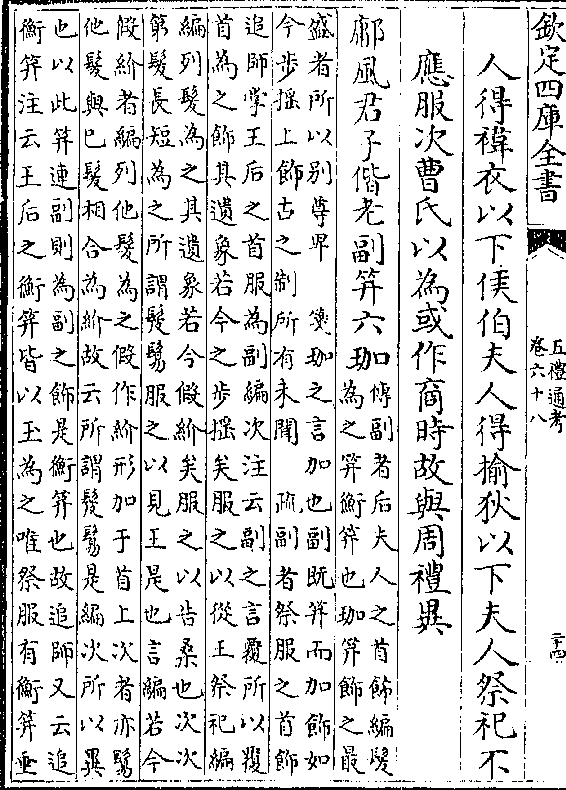 欽定四庫全書
五禮通考
卷六十八
二十四
人得褘衣以下侯伯夫人得揄狄以下夫人祭祀不
應服次曹氏以為或作商時故與周禮異
鄘風君子偕老副笄六珈
傳副者后夫人之首飾編髮
為之笄衡笄也珈笄飾之最
盛者所以别尊卑 箋珈之言加也副既笄而加飾如
今步摇上飾古之制所有未聞 疏副者祭服之首飾
追師掌王后之首服為副編次注云副之言覆所以覆
首為之飾其遺象若今之步摇矣服之以從王祭祀編
編列髮為之其遺象若今假紒矣服之以告桑也次次
第髮長短為之所謂髲鬄服之以見王是也言編若今
假紒者編列他髮為之假作紒形加于首上次者亦鬄
他髮與已髮相合為紒故云所謂髲鬄是編次所以異
也以此笄連副則為副之飾是衡笄也故追師又云追
衡笄注云王后之衡笄皆以玉為之唯祭服有衡笄垂